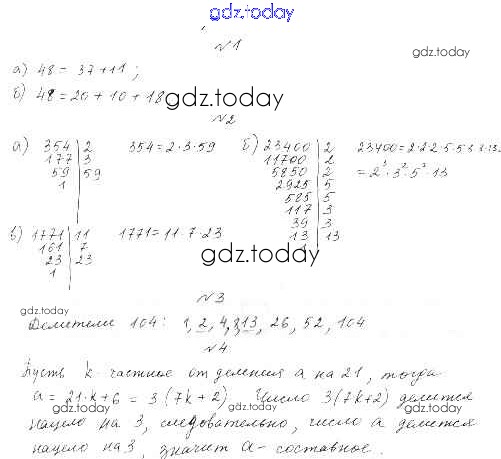 gdz.today
№1
gdz.today
а) 48 = 37 + 11 ;
б) 48 = 20 + 10 + 18
gdz.today
№2
а) 354 | 2 354 = 2·3·59 б) 23400 | 2 23400 = 2·2·2·5·5·3·3·13
177 | 3 11700 | 2
59 | 59 5850 | 2 = 2³·3²·5²·13
1 2925 | 5
585 | 5
117 | 3
39 | 3
13 | 13
1
в) 1771 | 11 1771 = 11·7·23
161 | 7
23 | 23
1
gdz.today
№3
gdz.today
Делители 104: 1, 2, 4, 8, 13, 26, 52, 104
№4
Пусть k - частное от деления a на 21, тогда
a = 21·k + 6 = 3(7k + 2) Число 3(7k+2) делится
gdz.today gdz.today gdz.today
нацело на 3, следовательно, число a делится
нацело на 3, значит a - составное.